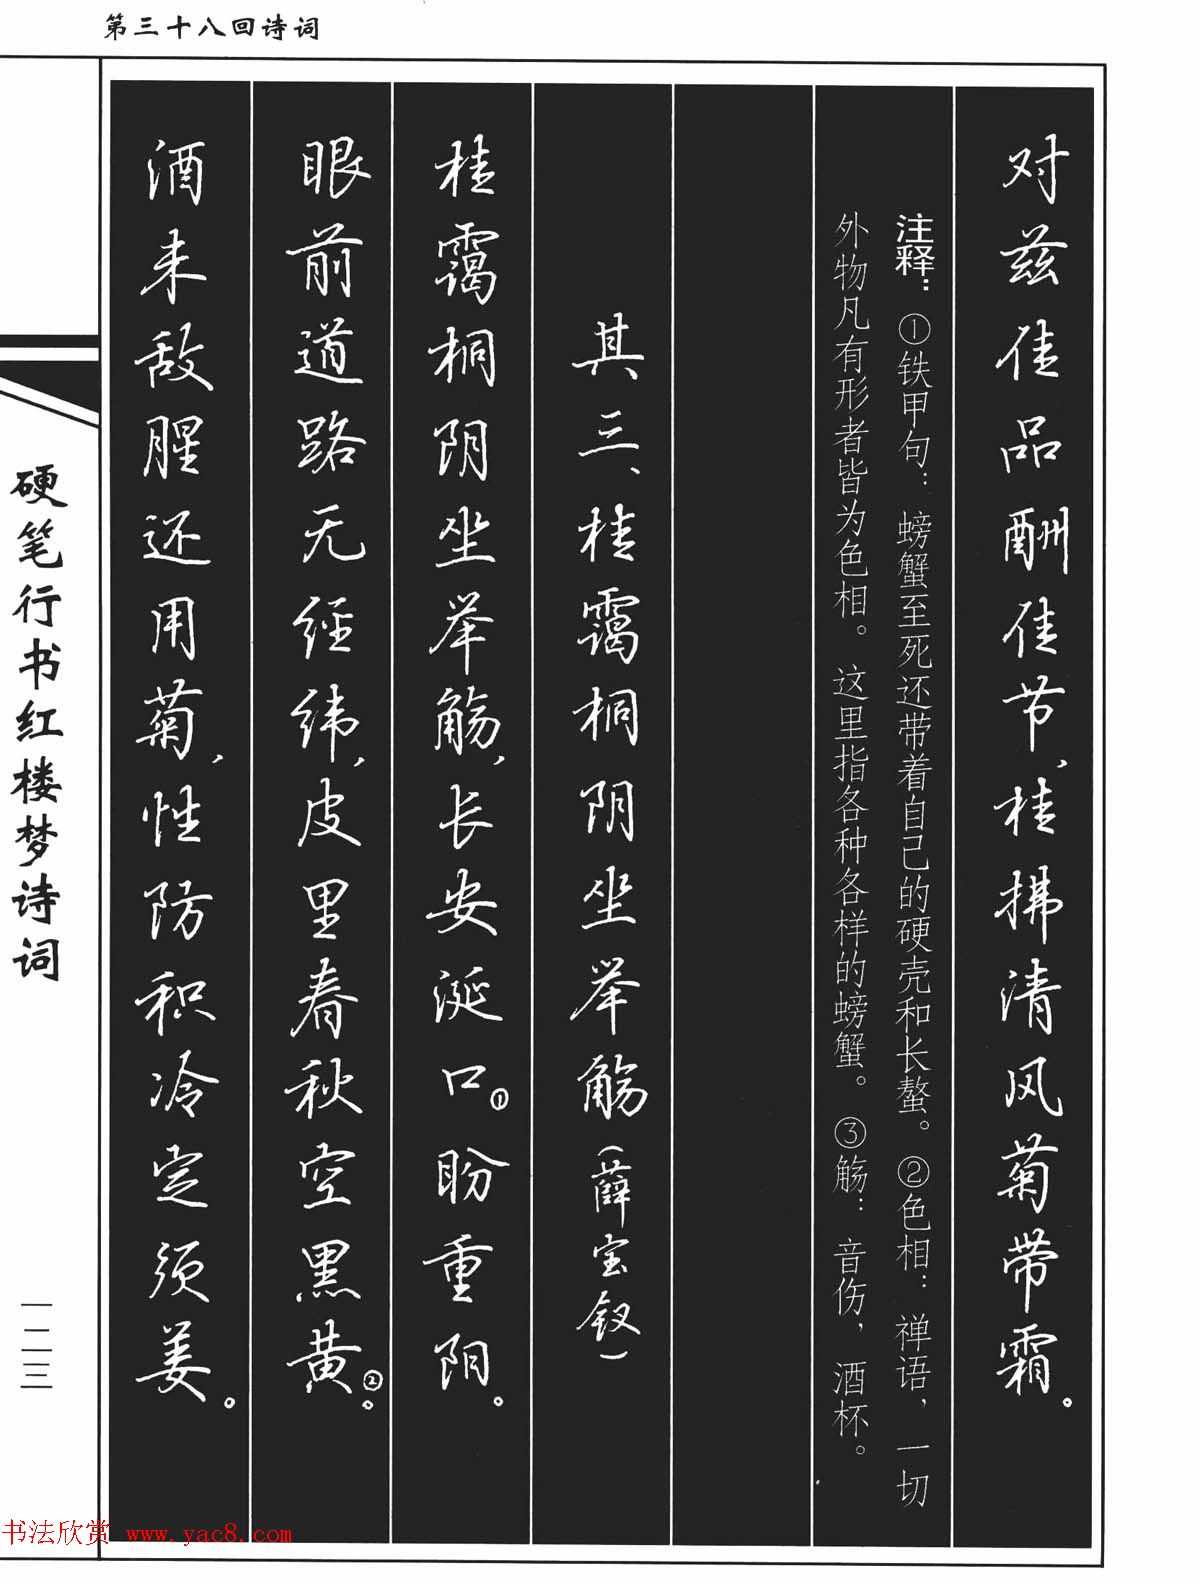 第三十八回诗词
对兹佳品酬佳节，桂拂清风菊带霜。
注释：①铁甲句：螃蟹至死还带着自己的硬壳和长螯。②色相：禅语，一切
外物凡有形者皆为色相。这里指各种各样的螃蟹。③觞：音伤，酒杯。
其三、桂霭桐阴坐举觞（薛宝钗）
桂霭桐阴坐举觞，长安涎口①盼重阳。
眼前道路无经纬，皮里春秋空黑黄②。
酒未敌腥还用菊，性防积冷定须姜。
硬笔行书红楼梦诗词
一二三
书法欣赏 www.yac8.com